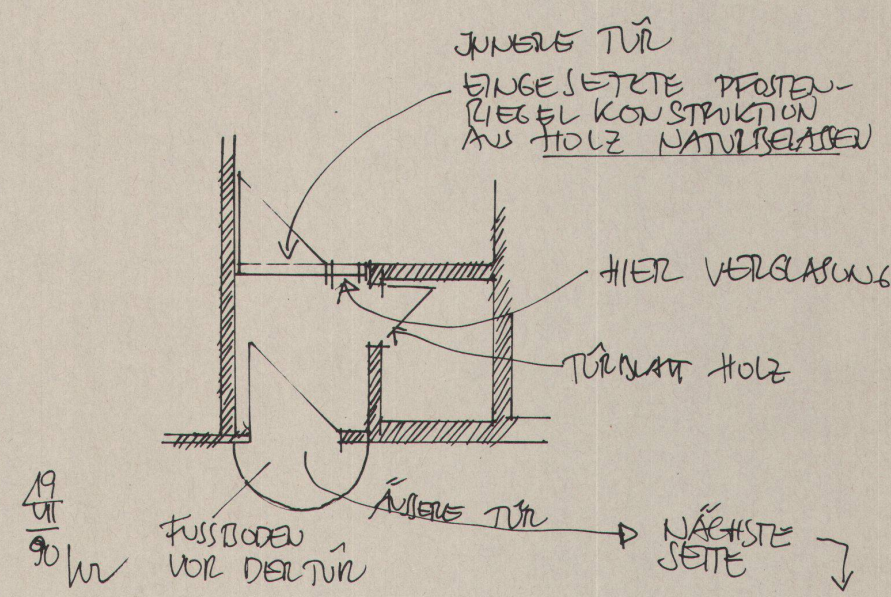 INNERE TÜR
EINGESETZTE PFOSTEN-
RIEGEL KONSTRUKTION
AUS HOLZ NATURBELASSEN
HIER VERGLASUNG
TÜRBLATT HOLZ
ÄUßERE TÜR
NÄCHSTE
SEITE
FUSSBODEN
VOR DER TÜR
19
VII
90